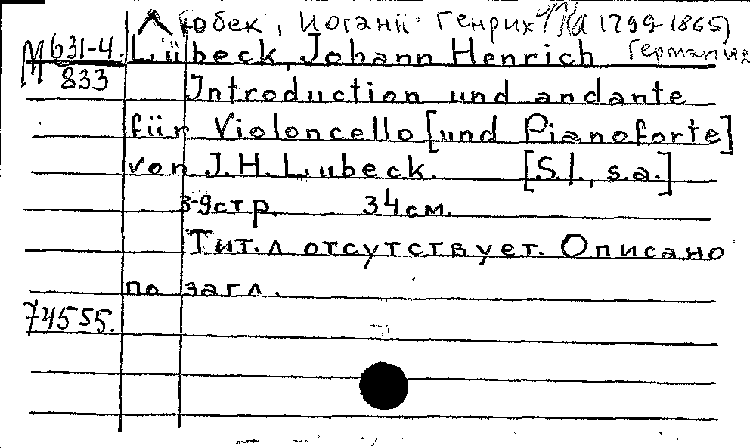 Любек, Иоганн Генрих 1799-1865)
М 631-4 Lübeck, Johann Henrich Германия
833 Introduction und andante
für Violoncello [und Pianoforte]
von J. H. Lubeck. [S.l., s.a.]
3-9 стр. 34 см.
Тит. л отсутствует. Описано
по загл.
74555.